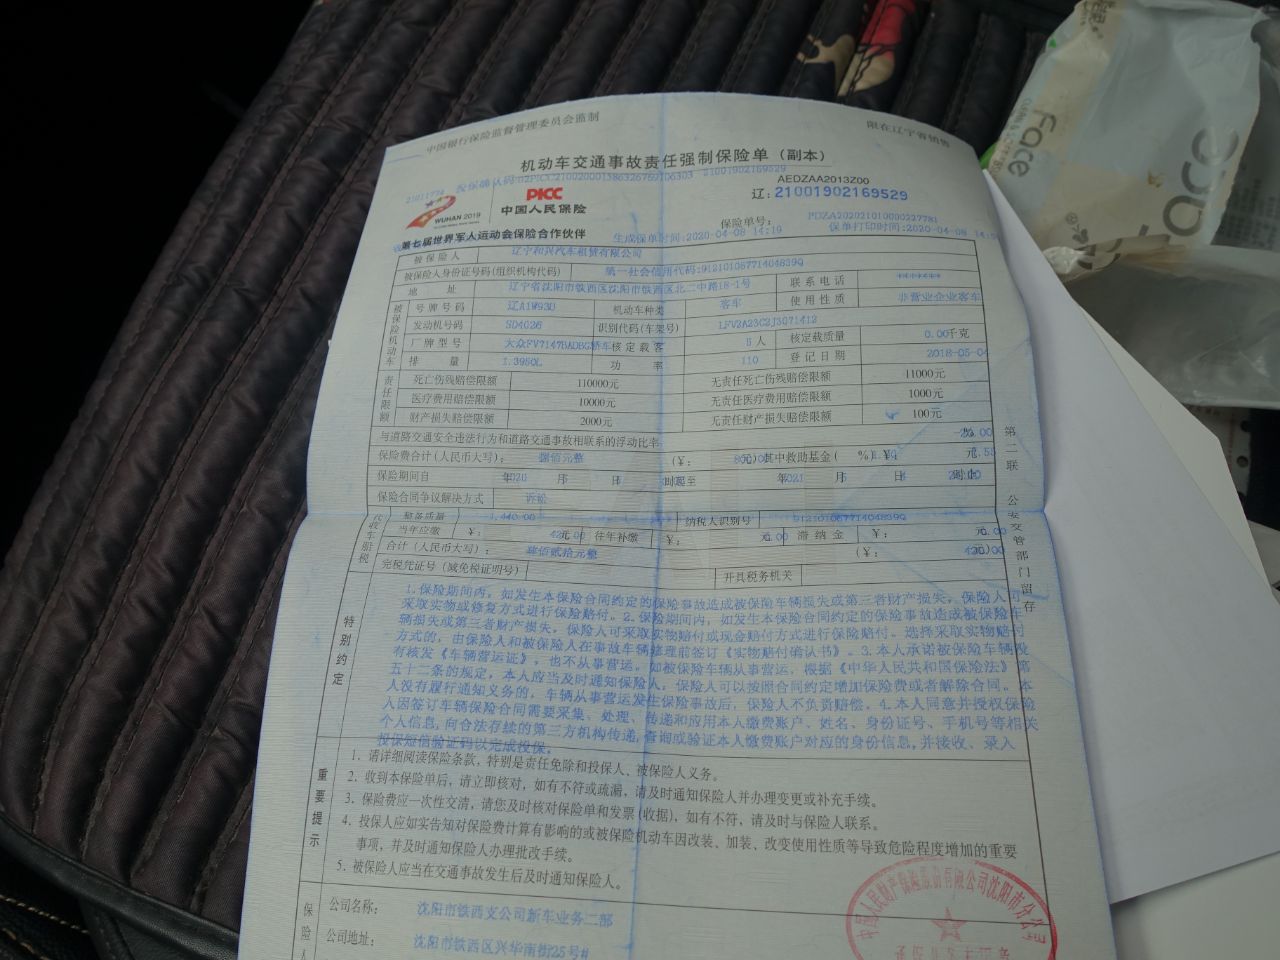 中国银行保险监督管理委员会监制
限在辽宁省销售
机动车交通事故责任强制保险单（副本）
AEDZAA2013Z00
辽: 21001902169529
WUHAN 2019
PICC
中国人民保险
第七届世界军人运动会保险合作伙伴
保险单号:
生成保单时间:2020-04-08 14:19
保单打印时间:2020-04-08
被保险人 辽宁和兴汽车租赁有限公司
被保险人身份证号码(组织机构代码)
地 址 辽宁省沈阳市铁西区沈阳市铁西区北二中路18-1号 联系电话 ******
被保险机动车
号牌号码 辽A1W93D 机动车种类 客车 使用性质 非营业企业客车
发动机号码 SD4026 识别代码(车架号) LFV2A23C2J3071412
厂牌型号 核定载客 5 人 核定载质量 0.00千克
排 量 功 率 110 登记日期 2018-05-04
责任限额
死亡伤残赔偿限额 110000元 无责任死亡伤残赔偿限额 11000元
医疗费用赔偿限额 10000元 无责任医疗费用赔偿限额 1000元
财产损失赔偿限额 2000元 无责任财产损失赔偿限额 100元
与道路交通安全违法行为和道路交通事故相联系的浮动比率
保险费合计(人民币大写): 捌佰元整
保险期间自
保险合同争议解决方式 诉讼
代收车船税
整备质量 纳税人识别号
当年应缴 往年补缴 滞纳金
合计（人民币大写）: 肆佰贰拾元整
完税凭证号（减免税证明号） 开具税务机关
特别约定
1.保险期间内，如发生本保险合同约定的保险事故造成被保险车辆损失或第三者财产损失，保险人可
采取实物或修复方式进行保险赔付。2.保险期间内，如发生本保险合同约定的保险事故造成被保险车
辆损失或第三者财产损失，保险人可采取实物赔付或现金赔付方式进行保险赔付。选择采取实物赔付
方式的，由保险人和被保险人在事故车辆修理前签订《实物赔付确认书》。3.本人承诺被保险车辆没
有核发《车辆营运证》，也不从事营运。如被保险车辆从事营运，根据《中华人民共和国保险法》第
五十二条的规定，本人应当及时通知保险人，保险人可以按照合同约定增加保险费或者解除合同。本
人没有履行通知义务的，车辆从事营运发生保险事故后，保险人不负责赔偿。4.本人同意并授权保险
人因签订车辆保险合同需要采集、处理、传递和应用本人缴费账户、姓名、身份证号、手机号等相关
个人信息，向合法存续的第三方机构传递，查询或验证本人缴费账户对应的身份信息，并接收、录入
投保短信验证码以完成投保。
重要提示
1. 请详细阅读保险条款，特别是责任免除和投保人、被保险人义务。
2. 收到本保险单后，请立即核对，如有不符或疏漏，请及时通知保险人并办理变更或补充手续。
3. 保险费应一次性交清，请您及时核对保险单和发票（收据），如有不符，请及时与保险人联系。
4. 投保人应如实告知对保险费计算有影响的或被保险机动车因改装、加装、改变使用性质等导致危险程度增加的重要
事项，并及时通知保险人办理批改手续。
5. 被保险人应当在交通事故发生后及时通知保险人。
保险人
公司名称: 沈阳市铁西支公司新车业务二部
公司地址: 沈阳市铁西区兴华南街25号#
第二联 公安交管部门留存
Face